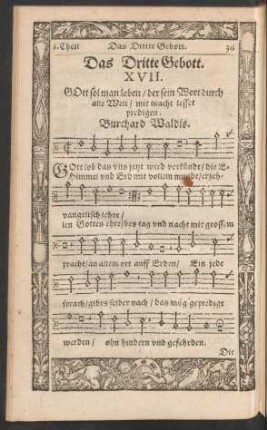 1. Theil
Das Dritte Gebott.
36
Das Dritte Gebott.
XVII.
GOtt sol man loben / der sein Wort durch
alle Welt / mit macht lesset
predigen.
Burchard Waldis.
GOtt lob das vns jetzt wird verkündt / die E-
Himmel vnd Erd mit vollem mundt / erzeh-
vangelisch lehre /
len Gottes ehre / bey tag vnd nacht mit grossem
pracht / an allem ort auff Erden / Ein jede
sprach / gibts selber nach / das mög gepredigt
werden / ohn hindern vnd gefehrden.
Die